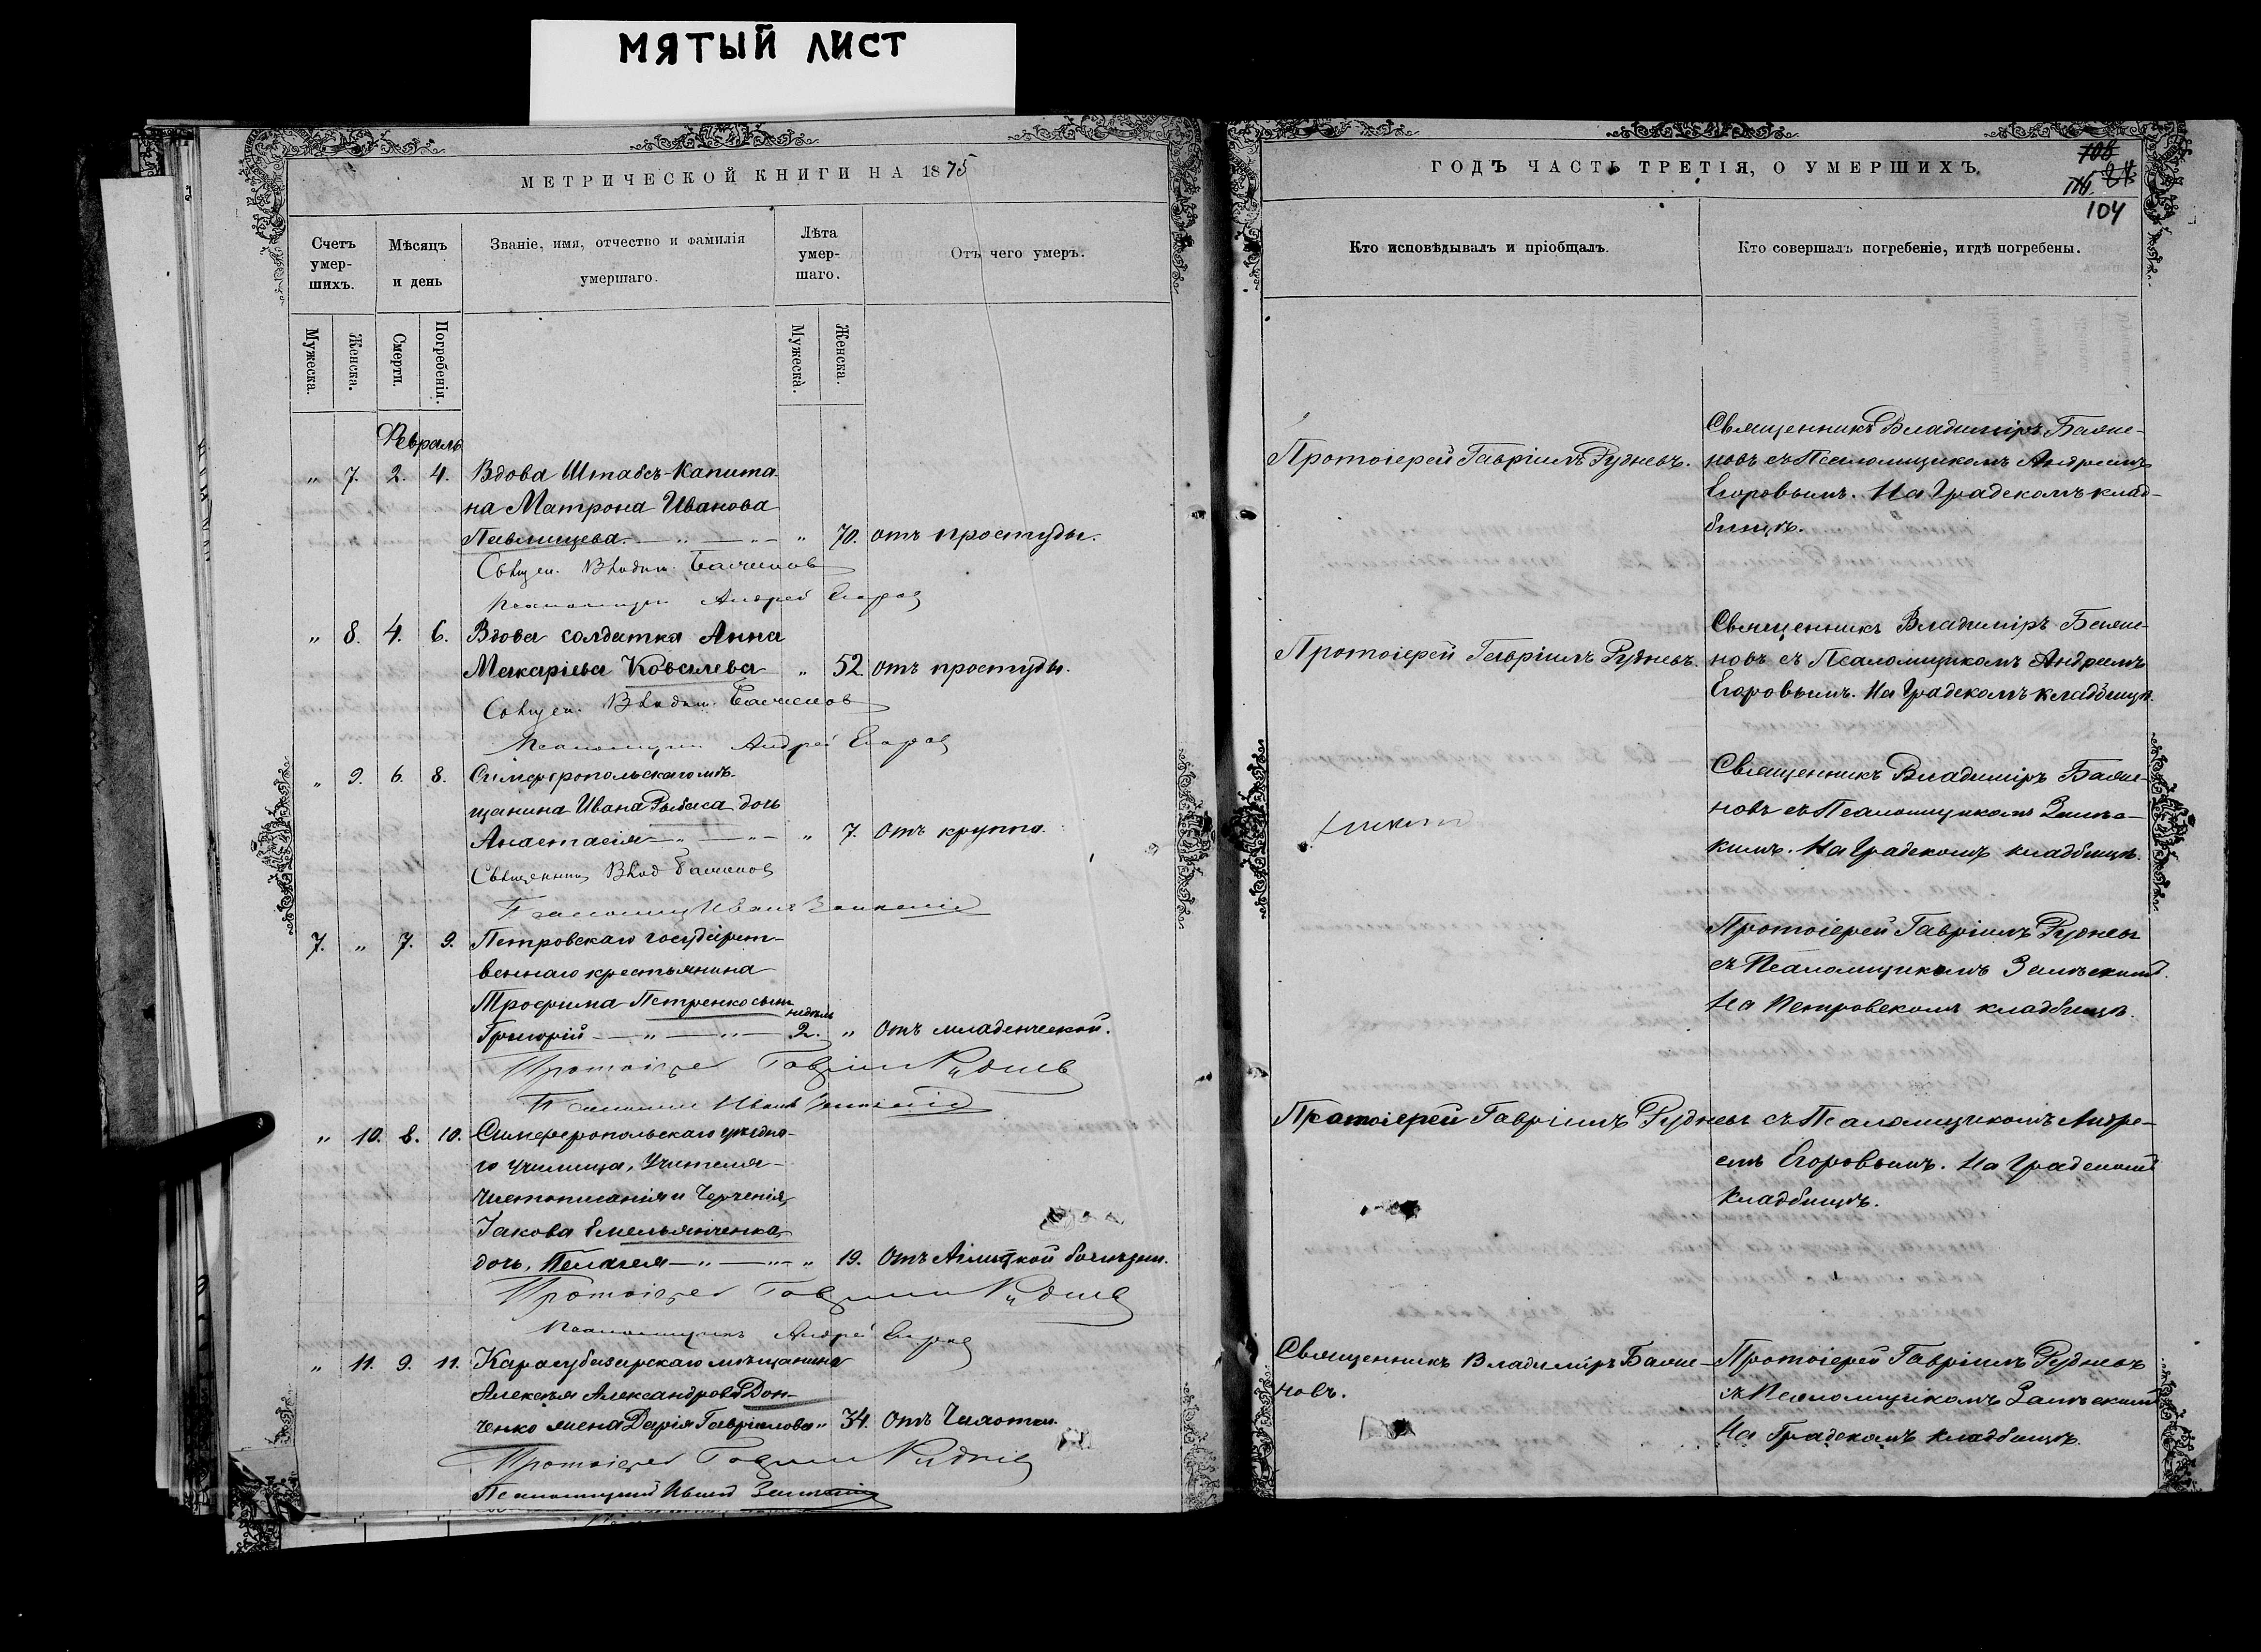 МЯТЫЙ ЛИСТ
МЕТРИЧЕСКОЙ КНИГИ НА 1875
Счетъ умер-шихъ.
Мѣсяцъ и день
Званіе, имя, отчество и фамилія умершаго.
Лѣта умер-шаго.
Отъ чего умеръ.
Мужеска.
Женска.
Смерти.
Погребенія.
Мужеска.
Женска.
Февраль
" 7. 2. 4. Вдова Штабсъ-Капита-
на Матрона Иванова
Павлищева. " 70. отъ простуды.
Священ. Владим. Баженов
Псаломщик Андрей Егоров
" 8. 4. 6. Вдова солдатка Анна
Макаріева Ковалева " 52. отъ простуды.
Священ. Владим. Баженов
Псаломщик Андрей Егоров
" 9. 6. 8. Симферопольскаго мѣ-
щанина Ивана Рыбаса дочь
Анастасія " 7. отъ круппа.
Священник Влад Баженов
Псаломщ Иванъ
7. " 7. 9. Петровскаго государст-
веннаго крестьянина
Трофима Петренко сынъ
недѣль
Григорій 2. " отъ младенческой.
Протоіерей Гавріил Руднев
Псаломщ Иванъ
" 10. 8. 10. Симферопольскаго уѣздна-
го училища, Учителя
чистописанія и Черченія,
Іакова Емельянченка
дочь, Пелагея " 19. отъ болѣзни.
Протоіерей Гавріил Руднев
Псаломщикъ Андрей Егоров
" 11. 9. 11. Карасубазарскаго мѣщанина
Алексѣя Александрова Дон-
ченко жена Дарія Гавріилова " 34. отъ Чахотки.
Протоіерей Гавріил Руднев
Псаломщикъ Иванъ
ГОДЪ ЧАСТЬ ТРЕТІЯ, О УМЕРШИХЪ.
104
Кто исповѣдывалъ и пріобщалъ.
Кто совершалъ погребеніе, и гдѣ погребены.
Протоіерей Гавріилъ Рудневъ.
Священникъ Владиміръ Баже-
новъ съ Псаломщикомъ Андреемъ
Егоровымъ. На Градскомъ клад-
бищѣ.
Протоіерей Гавріилъ Рудневъ.
Священникъ Владиміръ Баже-
новъ съ Псаломщикомъ Андреемъ
Егоровымъ. На Градскомъ кладбищѣ.
Священникъ Владиміръ Баже-
новъ съ Псаломщикомъ
На Градскомъ кладбищѣ.
Протоіерей Гавріилъ Рудневъ
съ Псаломщикомъ
На Петровскомъ кладбищѣ.
Протоіерей Гавріилъ Рудневъ съ Псаломщикомъ Андре-
емъ Егоровымъ. На Градскомъ
кладбищѣ.
Священникъ Владиміръ Баже-
новъ.
Протоіерей Гавріилъ Рудневъ
съ Псаломщикомъ
На Градскомъ кладбищѣ.